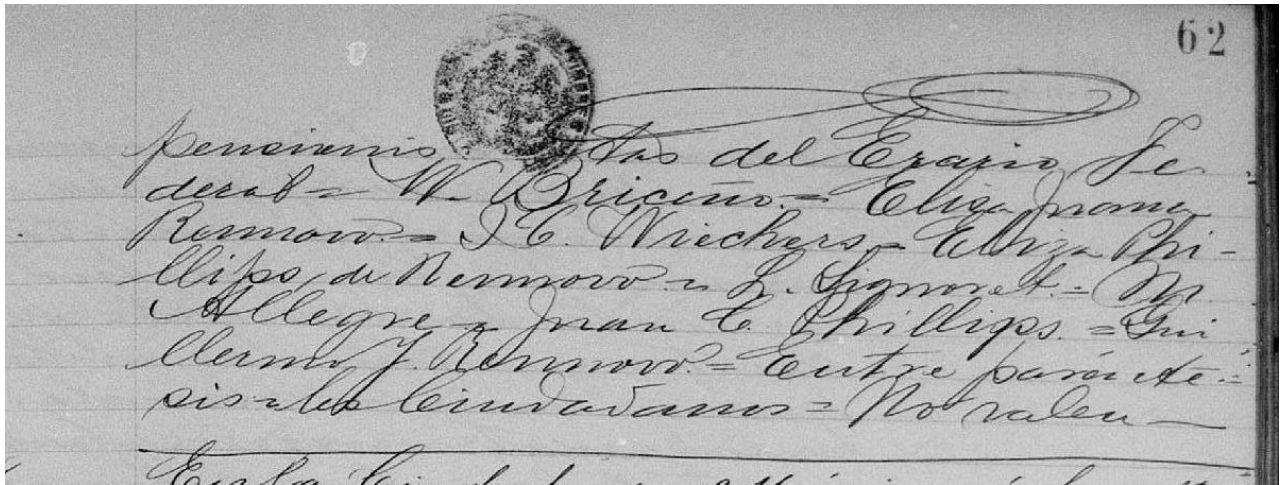 62
pensionis tas del Erario Fe
deral = W. Briceño. = Elisa Juana
Rennow. = I C. Wiechers = Eliza Phi-
llips de Rennow = L. Signoret. = M.
Allegre = Juan C. Phillips. = Gui
llermo J. Rennow. = Entre parénte=
sis = los Ciudadanos = No valen —
En la Ciudad de México